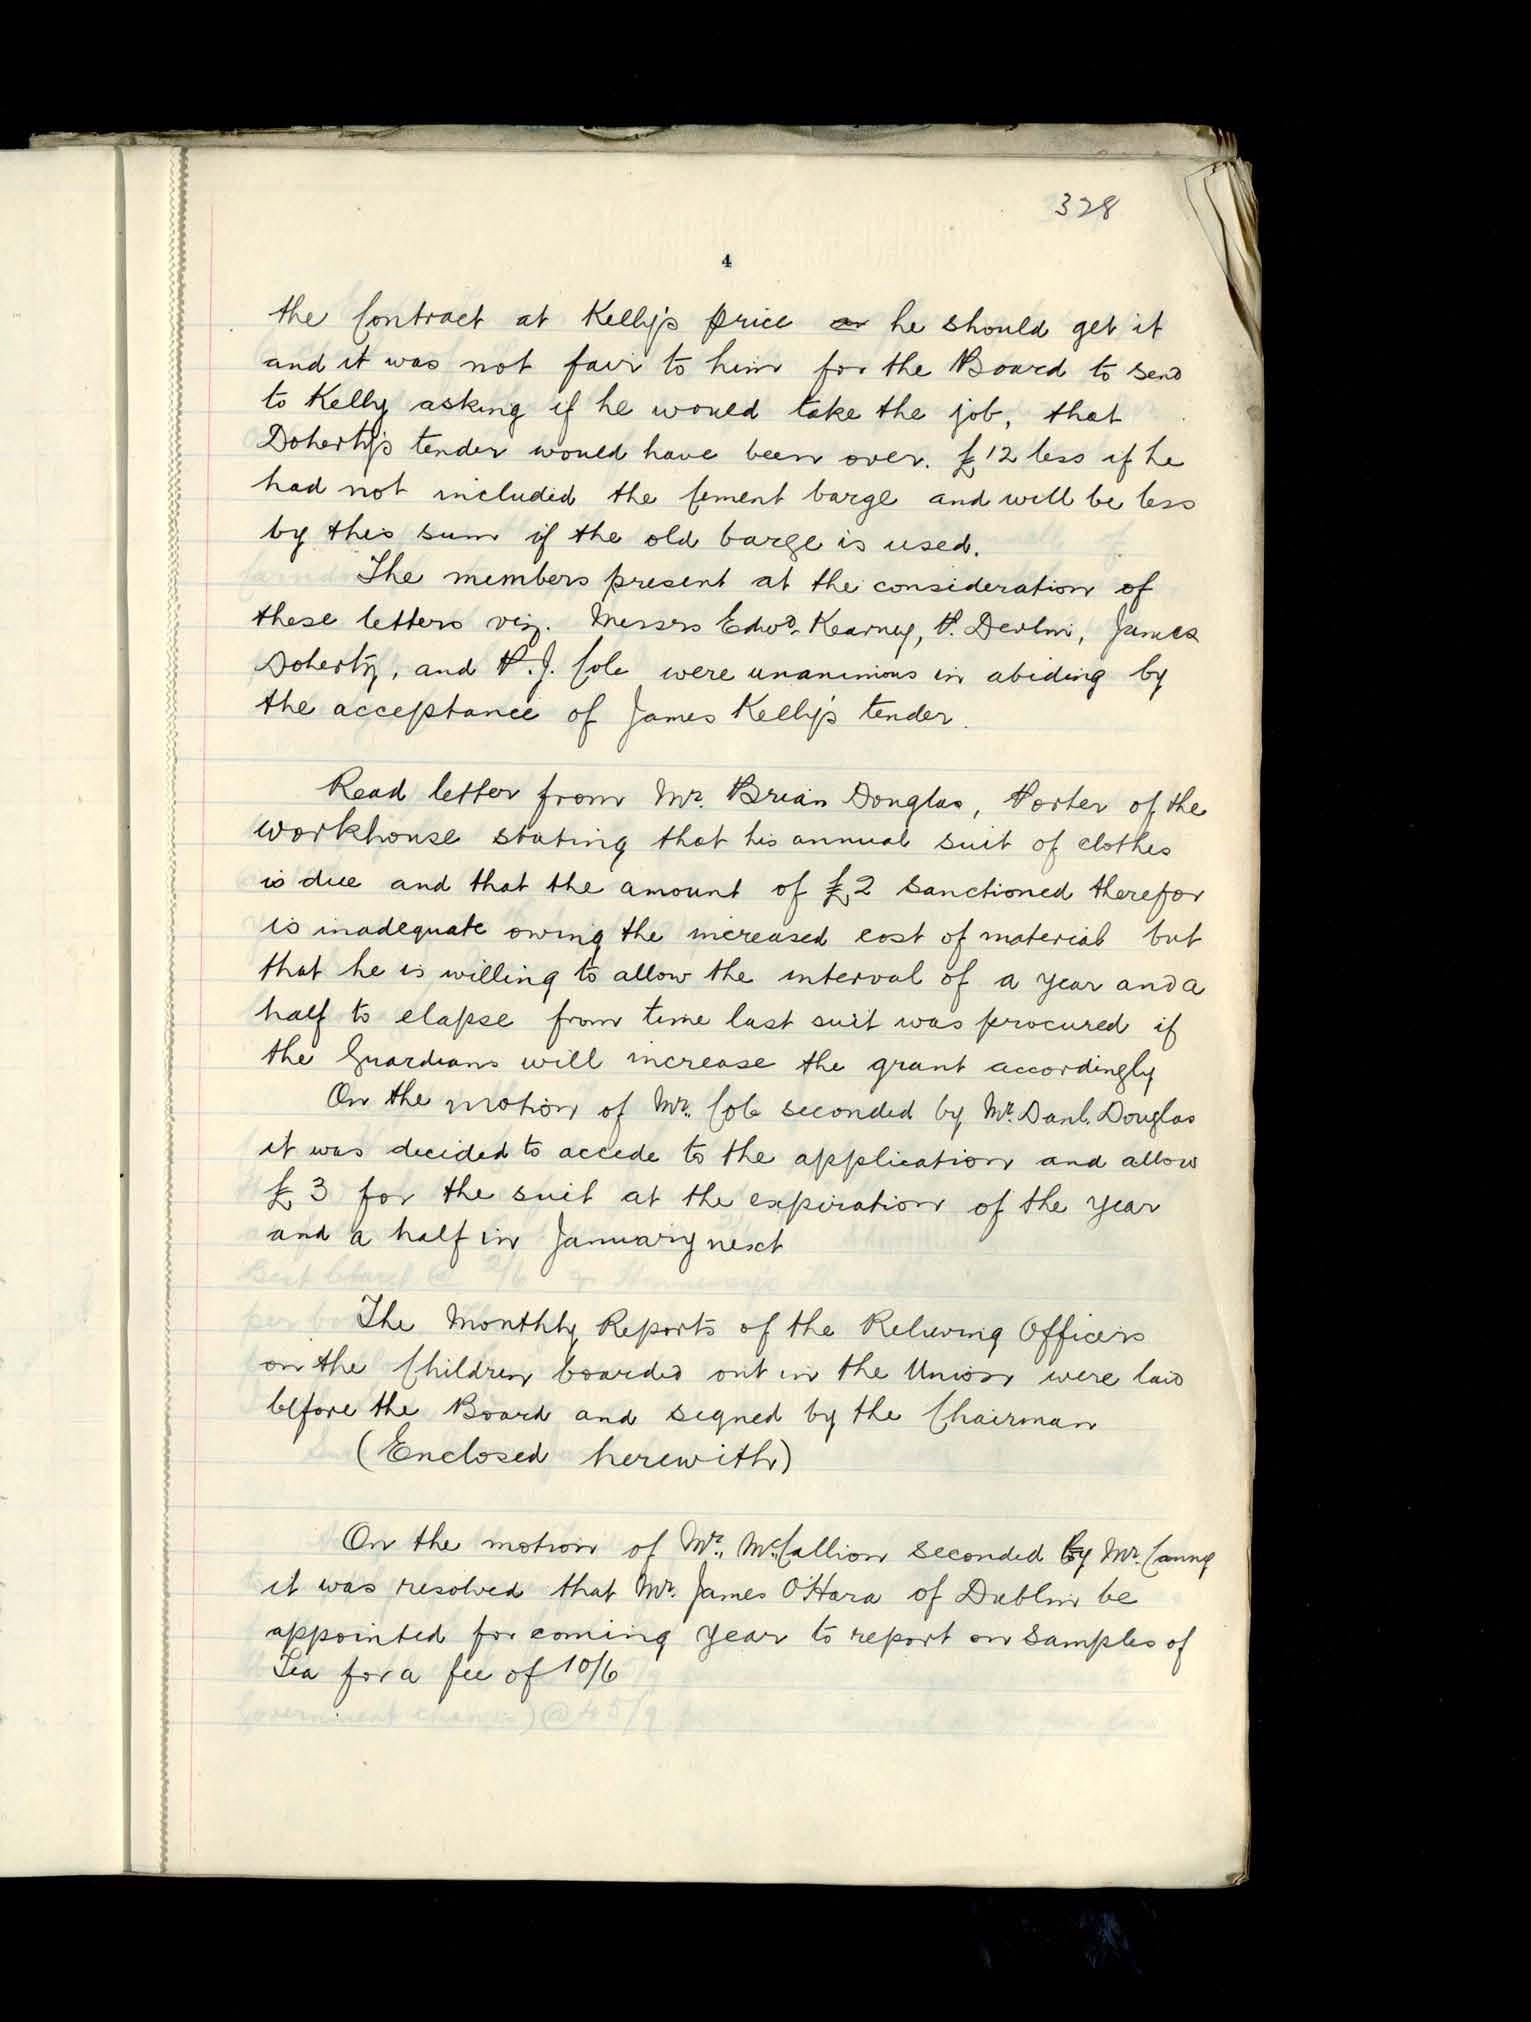 328
4
the Contract at Kelly's price he should get it
and it was not fair to him for the Board to send
to Kelly asking if he would take the job, that
Doherty's tender would have been over. £12 less if he
had not included the Cement barge and will be less
by this sum if the old barge is used.
The members present at the consideration of
these letters viz. Messrs Edwd. Kearney, P. Devlin, James
Doherty, and P. J. Cole were unanimous in abiding by
the acceptance of James Kelly's tender.
Read letter from Mr. Brian Douglas, Porter of the
workhouse stating that his annual suit of clothes
is due and that the amount of £2 sanctioned therefor
is inadequate owing the increased cost of material but
that he is willing to allow the interval of a year and a
half to elapse from time last suit was procured if
the Guardians will increase the grant accordingly
On the motion of Mr. Cole seconded by Mr. Danl. Douglas
it was decided to accede to the application and allow
£3 for the suit at the expiration of the year
and a half in January next
The Monthly Reports of the Relieving Officers
on the Children boarded out in the Union were laid
before the Board and signed by the Chairman
(Enclosed herewith)
On the motion of Mr. McCallion seconded by Mr. Canny
it was resolved that Mr. James O'Hara of Dublin be
appointed for coming year to report on samples of
Tea for a fee of 10/6